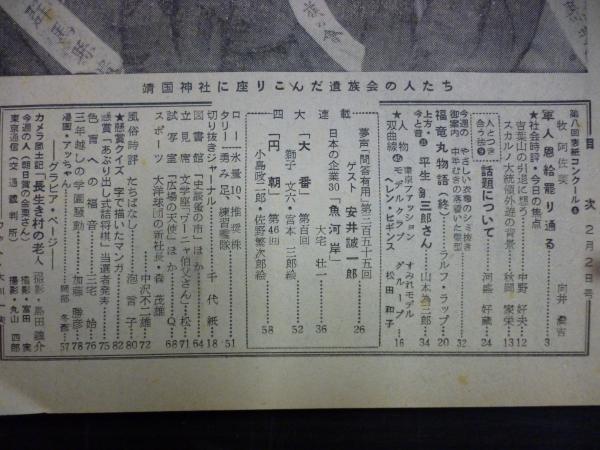 靖国神社に座りこんだ遺族会の人たち
目次 2月2日号
第八回表紙コンクール④
牧阿佐美 向井潤吉
軍人恩給罷り通る 3
★社会時評・今日の焦点
吉葉山の引退に想う 中野好夫 12
スカルノ大統領外遊の背景 秋岡家栄 13
人とつき合う法 話題について 河盛好蔵 24
今週の御案内 やさしい衣類のシミ抜き
中年むきの落着いた髪型 32
福竜丸物語(終) ラルフ・ラップ 20
上方・今と昔 平生釟三郎さん 山本為三郎 34
★人物双曲線 東京ファッションモデルクラブ すみれモデルグループ 16
ヘレン・ヒギンス 松田和子
夢声「問答有用」第二百五十五回
ゲスト 安井誠一郎 26
連載
日本の企業30「魚河岸」 大宅壮一 36
四大
「大番」 第百回
獅子文六・宮本三郎絵 52
「円朝」 第46回
小島政二郎・佐野繁次郎絵 58
ロータリー 水量10、推奨株
勇み足、練習艦隊 51
切り抜きジャーナル 千代紙 18
図書館「史展墓の市」ほか 64
立見席 文学座「ワーニャ伯父さん」・松 71
試写室「広場の天使」ほか・Q 68
スポーツ 大洋球団の新社長・森茂雄
中沢不二雄 72
風俗時評 たちばなし 泡言子 80
★懸賞クイズ 字で描いたマンガ 82
懸賞「あぶり出し式詰将棋」当選者発表 75
色盲への福音 三宅始 76
三年越しの学園騒動 加藤勝彦 78
漫画・アッちゃん 岡部冬彦 57
――グラビア・ページ――
カメラ風土記「長生き村の老人」 撮影・島田謹介
今週の人(朝日賞の金栗さん) 撮影・富田実
東京通信(交通裁判所) 撮影・丸山四郎